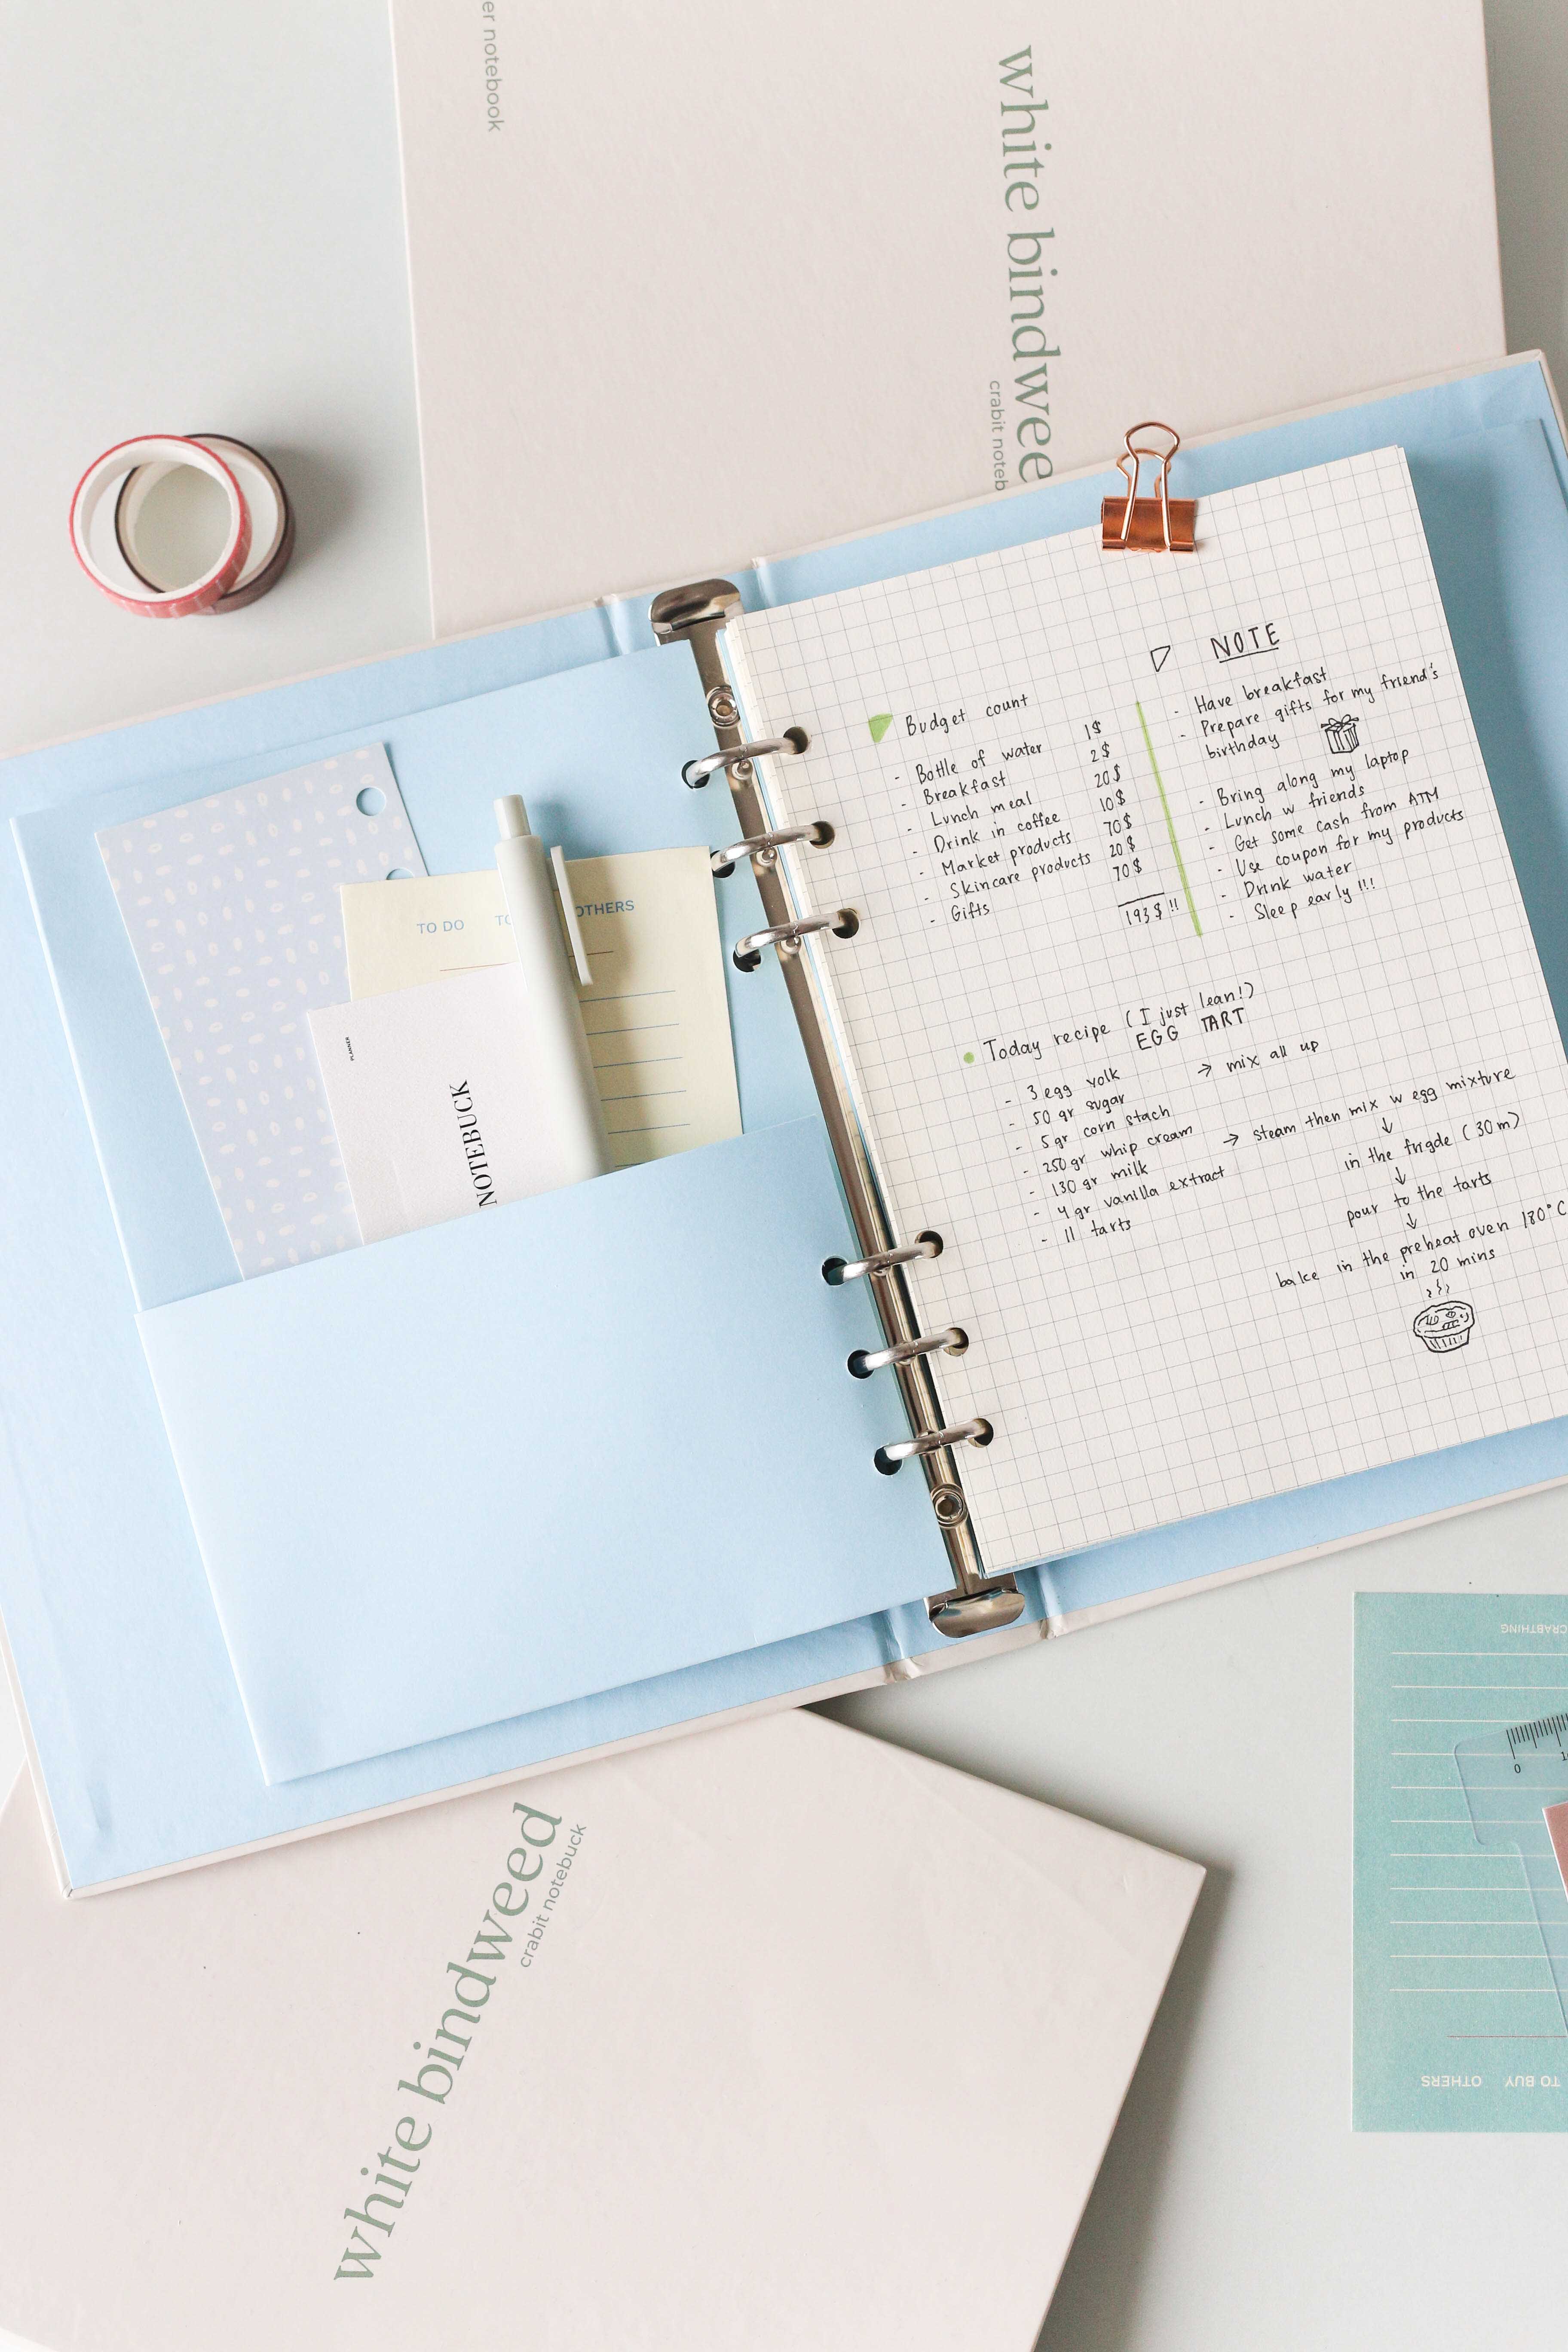 er notebook
white bindwee
crabit noteb
NOTE
Budget count
- Bottle of water 1$
- Breakfast 2$
- Lunch meal 20$
- Drink in coffee 10$
- Market products 70$
- Skincare products 20$
- Gifts 70$
193$ !!
- Have breakfast
- Prepare gifts for my friend's
birthday
- Bring along my laptop
- Lunch w friends
- Get some cash from ATM
- Use coupon for my products
- Drink water
- Sleep early !!!
Today recipe ( I just lean!)
EGG TART
- 3 egg yolk
- 50 gr sugar
- 5gr corn stach
- 250 gr whip cream
- 130 gr milk
- 4 gr vanilla extract
- 11 tarts
→ mix all up
→ steam then mix w egg mixture
↓
in the frigde ( 30 m)
↓
pour to the tarts
↓
bake in the preheat oven 180°C
in 20 mins
TO DO TO OTHERS
PLANNER
NOTEBUCK
CRABTHING
0 1
TO BUY OTHERS
white bindweed
crabit notebuck